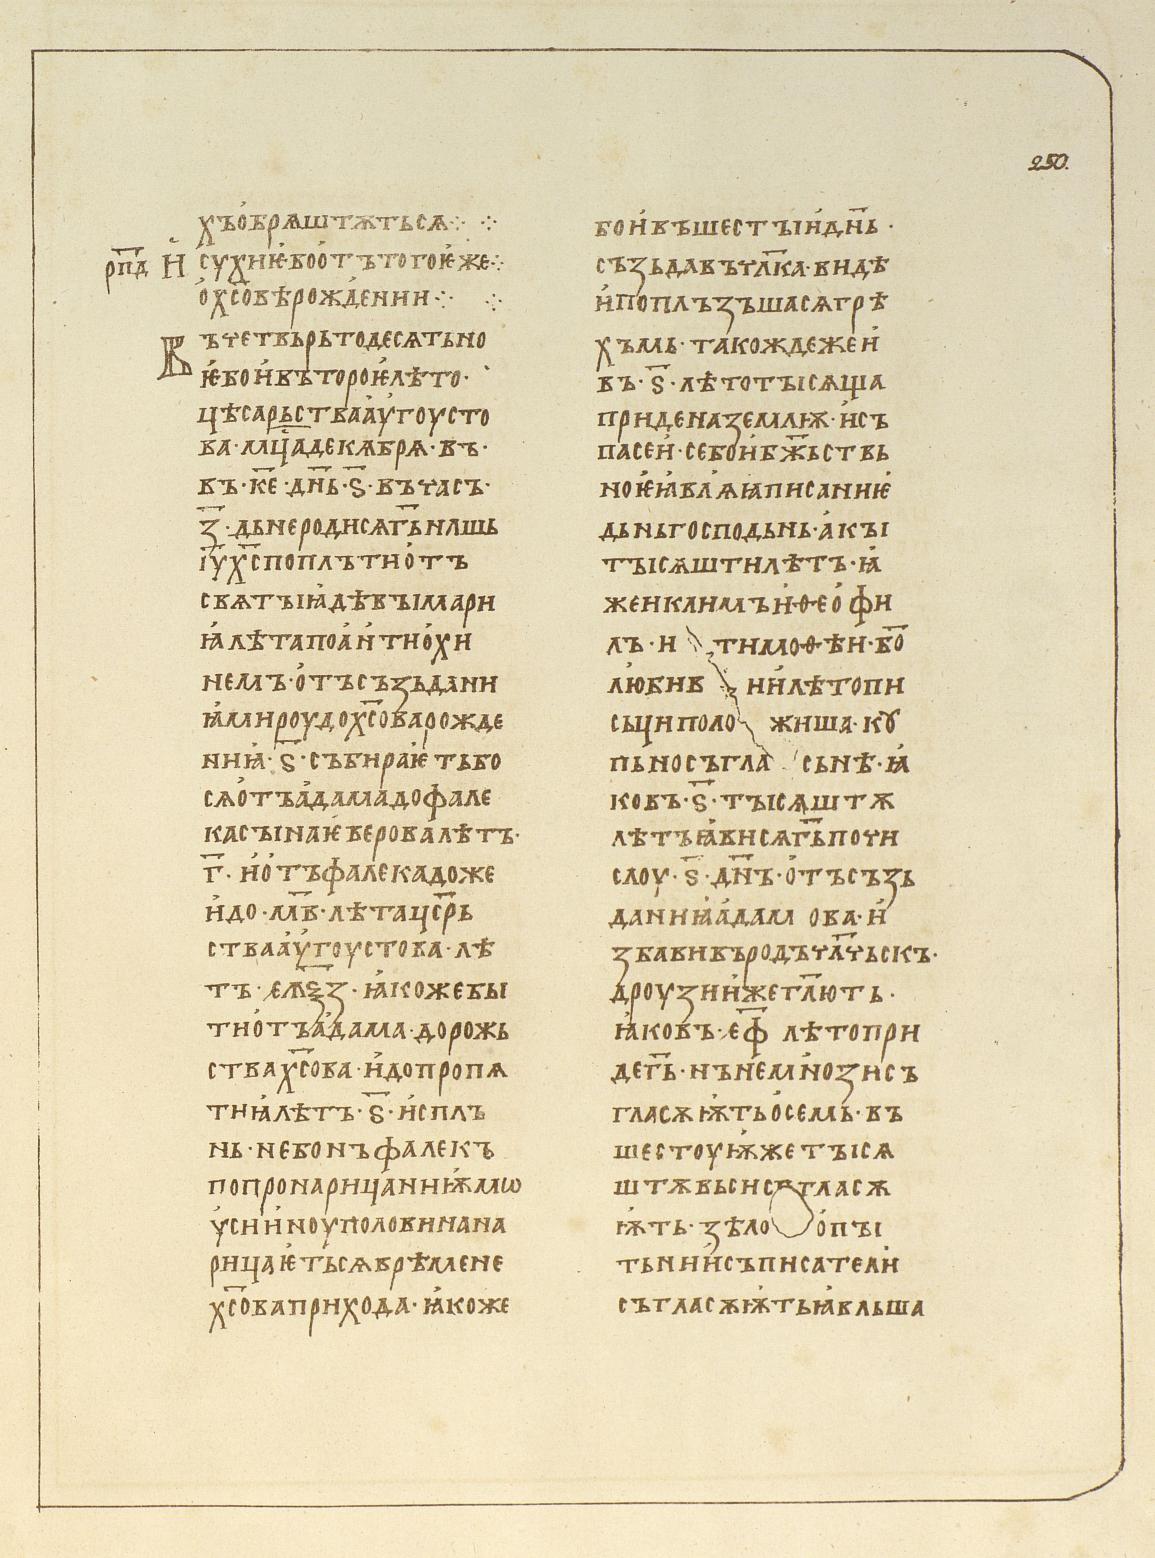 250.
хъобрѧштѫтьсѧ⁘ ⁘
рп҃д И сухиѥ·боотътогоѥже⁘
о х҃совѣрождении⁘ ⁘
Въчетвьрьтодесѧтьно
ѥбоивътороѥлѣто·
цѣсарьстваау҆гоусто
ва·мц҃адекѧбрѧ·въ·
въ·к҃е·дн҃ь·ѕ҃·въчасъ·
з҃·дьнеродисѧг҃ьнашь
іу҃х҃споплътиотъ
свѧтыꙗдѣвꙑмари
ꙗлѣтапоаньтиохи
немъ·отъсъзьдани
ꙗмироудох҃соварожде
ниꙗ·ѕ҃·събираѥтьбо
сѧотъадамадофале
касынаѥверовалѣтъ·
г҃·иотъфалекадоже
идо·м҃в·лѣтацс҃рь
стваау҆гоустова·лѣ
тъ·҂еѿѯ҃з·ꙗкожебы
тиотъадама·дорожь
ствах҃сова·идопропѧ
тиꙗлѣтъ·ѕ҃·испль
нь·небонъфалекъ
попронарицаниѭмѡ
ѵсииноуполовинана
рицаѥтьсѧврѣмене
х҃соваприхода·ꙗкоже
боивъшестꙑидн҃ь·
съзьдавъчл҃ка·видѣ
ипоплъзъшасѧгрѣ
хъмь·такождежеи
въ·ѕ҃·лѣтотысѧща
приденаземлѭ·исъ
пасеи·себоибж҃ьствь
ноѥꙗвлѧꙗписаниѥ
дьньгосподьнь·акы
тысѧштилѣтъ·ꙗ
жеиклимъиѳеофи
лъ·и тимоѳѣи·бо҃
любив ииːлѣтопи
сьциполо жиша·кꙋ
пьносъгла сьнѣ·ꙗ
ковъ·ѕ҃·тысѧштѫ
лѣтъꙗвисѧг҃ьпочи
слоу·ѕ҃·дн҃ъ·отъсъзь
даниꙗадам ова·и
збавивъродъчл҃чьскъ·
дроузиижегл҃ють·
ꙗковъ·҂еф҃ лѣтопри
дег҃ь·нънемнозисъ
гласѫѭтьосемь·въ
шестоуѭжетысѧ
штѫвьсисъгласѫ
ѭть·зѣло опы
тьнииисъписатели
съгласѫѭтьꙗвльша